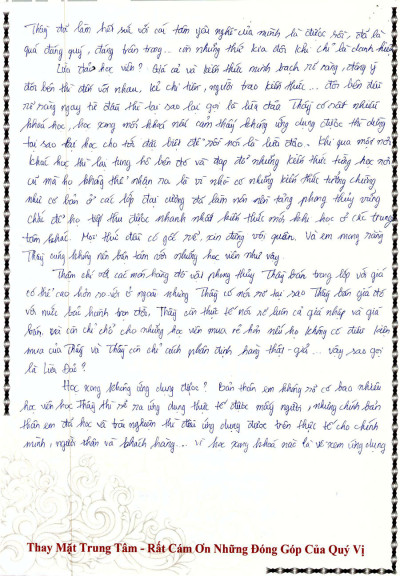 Thầy đã làm hết sức với cái tâm yêu nghề của mình là được rồi, đó là
quá đáng quý, đáng trân trọng... còn những thứ kia đôi khi chỉ là danh hiệu
Lừa đảo học viên? Giá cả và kiến thức minh bạch rõ ràng, đồng ý
đôi bên thì đến với nhau. Kẻ chi tiền, người trao kiến thức... đôi bên đều
rõ ràng ngay từ đầu thì tại sao lại gọi là lừa đảo. Thầy có rất nhiều
khoá học, học xong mỗi khoá nếu cảm thấy không ứng dụng được thì dừng
tại sao lại học cho tới dài biết để rồi nói là lừa đảo. Khi qua một mỗi
khoá học thì lại tung hô bên đó và đạp đổ những kiến thức thầy học nơi
cũ mà họ không thể nhận ra là vì nhờ có những kiến thức tưởng chừng
như cơ bản ở các lớp đại cương đó làm nên nền tảng phong thuỷ vững
chắc để họ tiếp thu được nhanh nhất kiến thức mới khi học ở chỗ trung
tâm khác. Mọi thứ đều có gốc rễ, xin đừng vội quên. Và em mong rằng
Thầy cũng không nên bận tâm với những học viên như vậy.
Thậm chí với các món hàng đồ vật phong thuỷ Thầy bán trong lớp với giá
có thể cao hơn so với ở ngoài nhưng Thầy có nói rõ tại sao Thầy bán giá đó
với mức Thầy còn thực tế nói rõ luôn cả giá nhập và giá
bán, và còn chỉ chỗ cho những học viên mua rẻ hơn nếu họ không có điều kiện
mua của Thầy và Thầy còn chỉ cách phân định hàng thật - giả... vậy sao gọi
là Lừa Đảo?
Học xong không ứng dụng được? Bản thân em không rõ có bao nhiêu
học viên học Thầy thì rồi ra ứng dụng thực tế được mấy người, nhưng chính bản
thân em đã học và trải nghiệm thì đều ứng dụng được trên thực tế cho chính
mình, người thân và khách hàng... Vì học xong khoá nào là về xem ứng dụng
Thay Mặt Trung Tâm - Rất Cám Ơn Những Đóng Góp Của Quý Vị